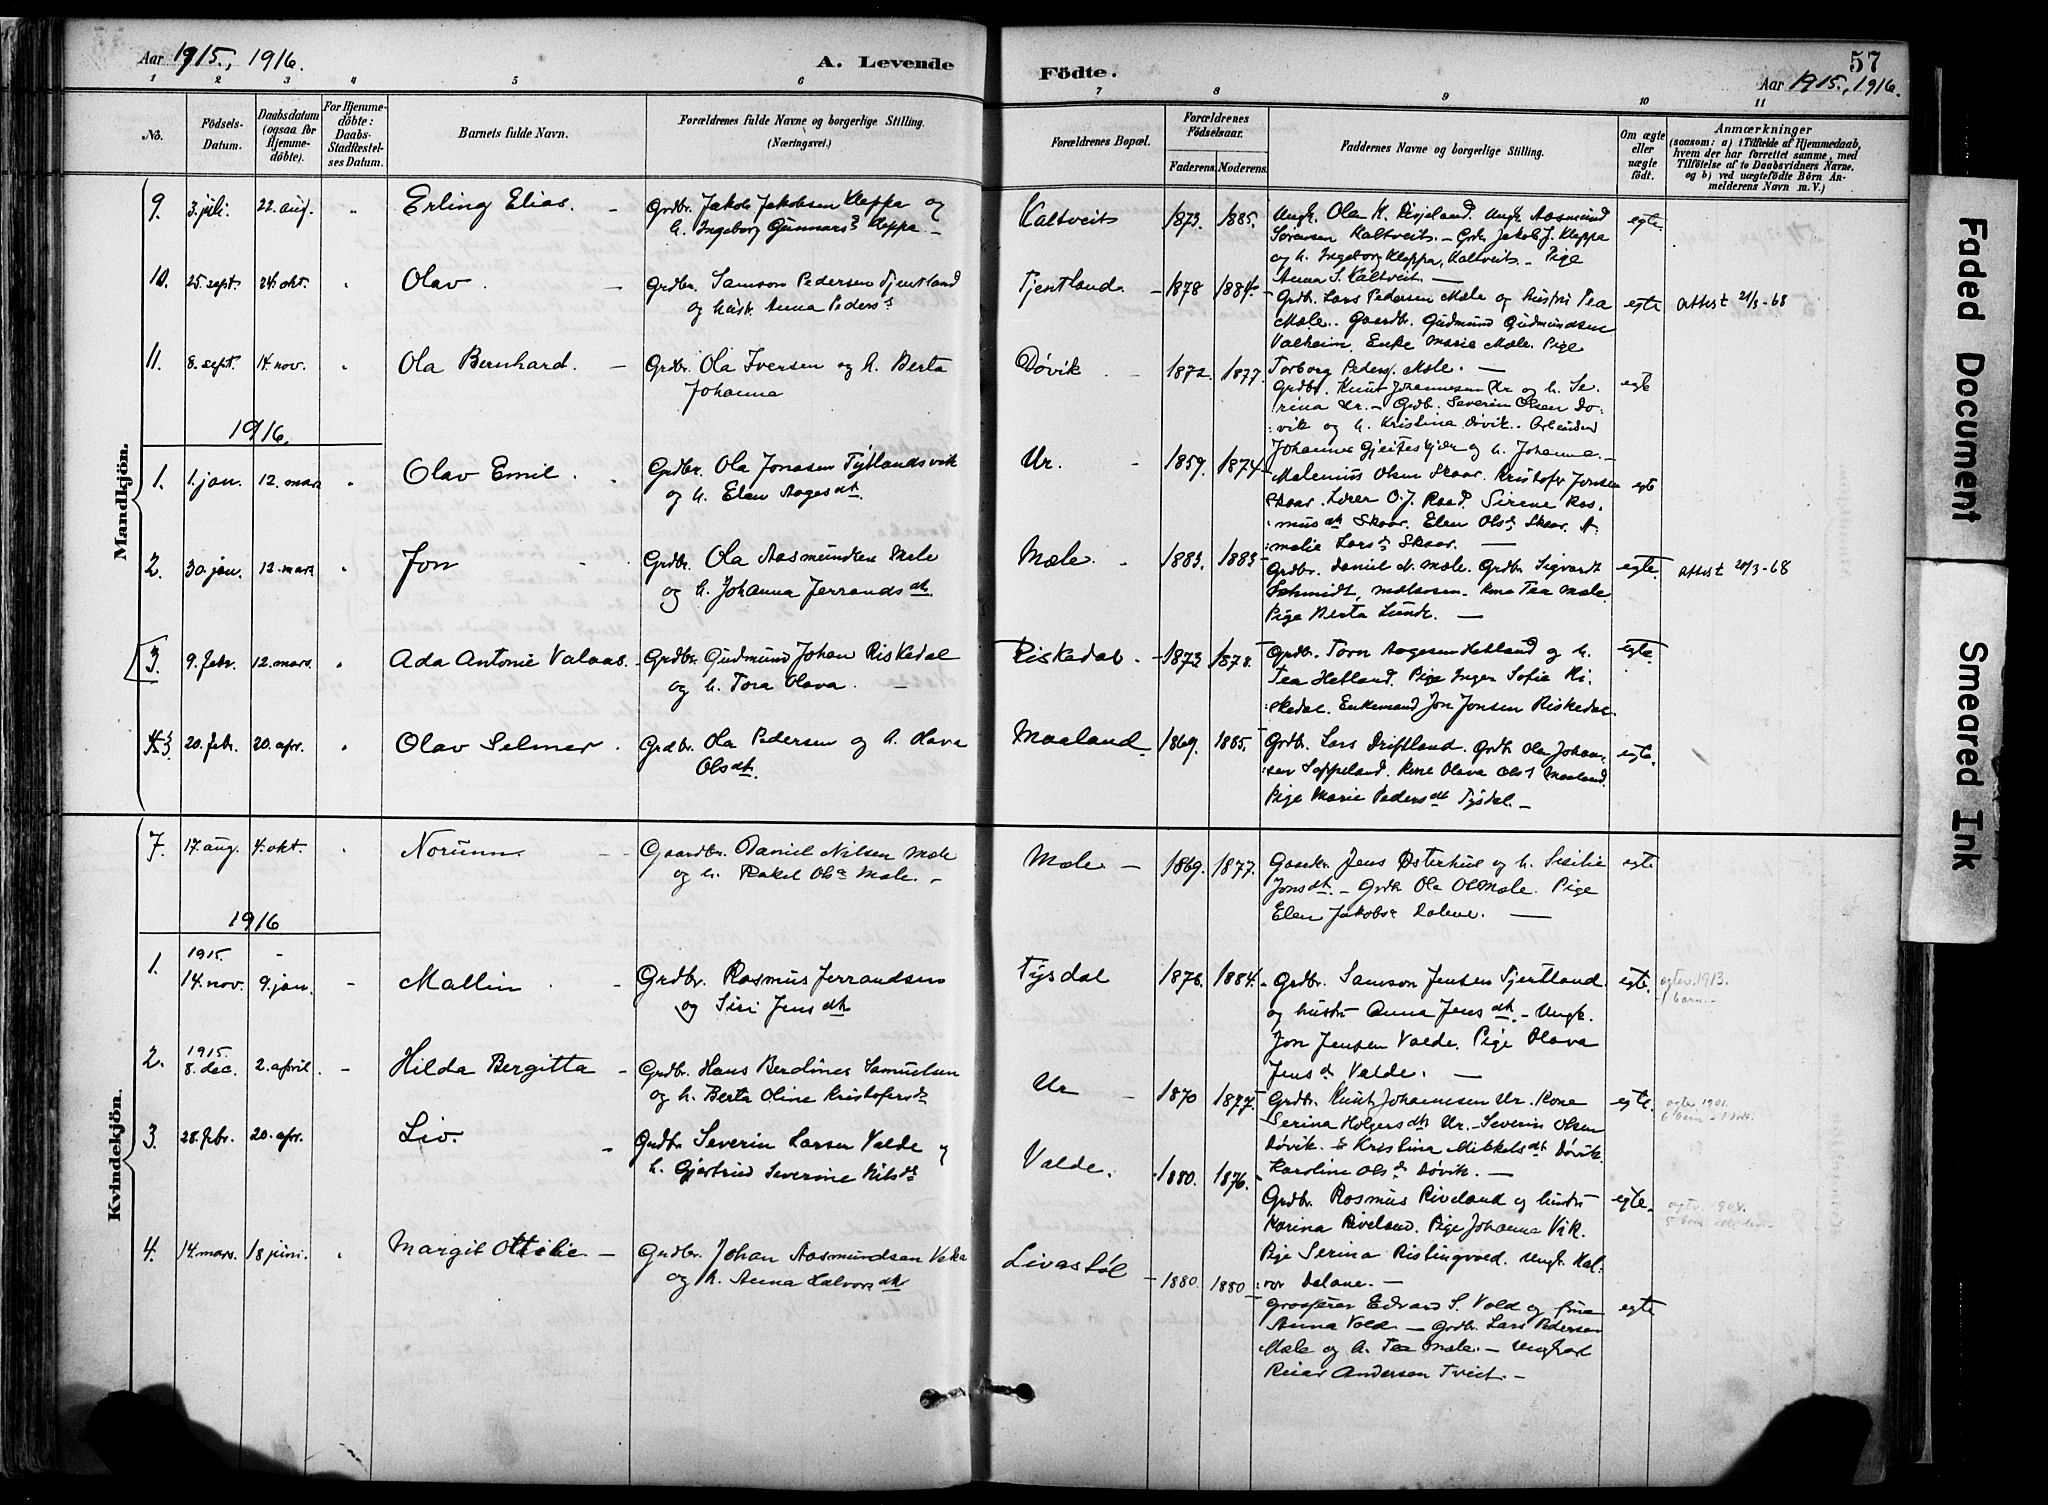 Aar 1915, 1916.
A. Levende Födte.
57
Aar 1915, 1916.
1 2 3 4 5 6 7 8 9 10 11
No.
Födsels-
Datum.
Daabsdatum
(ogsaa for
Hjemme-
döbte).
For Hjemme-
döbte:
Daabs-
Stadfæstel-
ses Datum.
Barnets fulde Navn.
Forældrenes fulde Navne og borgerlige Stilling.
(Næringsvei.)
Forældrenes Bopæl.
Forældrenes
Födselsaar.
Faderens. Moderens.
Faddernes Navne og borgerlige Stilling.
Om ægte
eller
uægte
födt.
Anmærkninger
(saasom: a) i Tilfælde af Hjemmedaab,
hvem der har forrettet samme, med
Tilföielse af to Daabsvidners Navne.
og b) ved uægtefödte Börn An-
melderens Navn m. V.)
Mandkjön.
9. 3. juli. 22. aug. " Erling Elias. – Grdbr. Jakob Jakobsen Kleppa og
h. Ingeborg Gunnarsd Kleppa –
Kaltveit 1873. 1885.
Ungk. Ola K. Ungk. Aasmund
Sörensen Kaltveit. – Grdb Jakob J. Kleppa
og h. Ingeborg Kleppa, Kaltveit. – Pige
Anna S. Kaltveit –
egte
10. 25. sept 24. okt. " Olav. – Grdbr. Samson Pedersen Tjentland
og hustr. Anna Pedersd
Tjentland. – 1878 1884
Grdbr. Lars Pedersen Mæle og hustru Tea
Mæle. Gaardbr. Gudmund Gudmundsen
Valheim, Enke Marie Mæle. Pige
Torborg Pedersd. Mæle. –
egte Attest 21/3-68
11. 8. sept. 14. nov. " Ola Bernhard. – Grdbr. Ola Iversen og h. Berta
Johanna
Dövik – 1872. 1877.
Grdbr. Knut Johannesen Ur og h. Se-
rina Ur. – Grdb. Severin Olsen Dö-
vik og h. Kristina Dövik.
Johannes og h. Johanna. –
egte
1916.
1. 1. jan. 12. mars " Olav Emil. Grdbr. Ola Jonasen Tytlandsvik
og h. Elen Aagesdt.
Ur. – 1859. 1874
Malenius Olsen Skaar. Kristofer Jonsen
Skaar. Lærer O. J. Raad. Sirene Ras-
musdt Skaar. Elen Olsd. Skaar. A-
malie Larsd Skaar. –
egte
2. 30. jan. 12. mars " Jon – Grdbr. Ola Aasmundsen Mæle
og h. Johanna Jerrandsdt.
Mæle. – 1883. 1883
Grdbr. Daniel N. Mæle. Grdbr. Sigvardt
Schmidt, Kone Tea Mæle.
Pige Berta Lunde. –
egte. Attest 20/3-68
3. 9. febr. 12. mars. " Ada Antonie Valaas. – Grdbr. Gudmund Johan Riskedal
og h. Tora Olava. –
Riskedal. – 1873 1878.
Grdbr. Torn Aagesen Hetland og h.
Tea Hetland. Pige Inger Sofie Ri-
skedal. Enkemand Jon Jonsen Riskedal.
egte.
3 20. febr. 20. apr. " Olav Selmer. Grdbr. Ola Pedersen og h. Olava
Olsdt.
Maaland. 1869. 1885.
Grdbr. Lars Driftland. Grdb. Ola Johan-
sen Soppeland. Kone Olava Olsd Maaland.
Pige Marie Pedersdt Tysdal. –
egte.
Kvindekjön.
7. 17. aug. 4. okt. " Norunn. – Gaardbr. Daniel Nilsen Mæle
og h. Rakel Olsd Mæle. –
Mæle – 1869. 1877.
Gaardbr. Jens Østerhus og h. Sisilie
Jonsdt. – Grdb. Ola O Mæle. Pige
Elen Jakobsd Dalene. –
egte
1916
1. 1915. 14. nov. 9. jan. – Mallin. Grdbr. Rasmus Jerrandsen
og Siri Jensdt.
Tysdal 1878. 1884.
Grdbr. Samson Jensen Tjentland
og hustr Anna Jensdt. – Ungk.
Jon Jensen Valde. Pige Olava
Jensd Valde. –
egte. egtev. 1913.
1 barn. –
2. 1915. 8. dec. 2. april. – Hilda Bergitta – Grdbr. Hans Berdines Samuelsen
og h. Berta Oline Kristofersdt
Ur – 1870 1877.
Grdbr. Knut Johannesen Ur. Kone
Serina Holgersdt Ur. – Severin Olsen
Dövik. & Kristina Mikkelsdt Dövik.
Karoline Olsd Dövik. –
egte. egtev. 1901.
3. 28. febr. 20. apr. Liv. – Grdbr Severin Larsen Valde og
h. Gjertrud Severine Nilsdt
Valde. 1880. 1876.
Grdbr. Rasmus Riveland og hustr
Karina Riveland. Pige Johanna Vik.
Pige Serina Ristingvoed. Ungk. Hal-
vor Dalane. –
egte. egtev. 1904.
4. 14. mars. 18 juni. " Margit Ottilie – Grdbr. Johan Aasmundsen
og h. Anna Halvorsdt
Livastöl – 1880. 1880
Grosserer Edvard S. Vold og frue
Anna Vold – Grdbr. Lars Pedersen
Mæle og h. Tea Mæle. – Ungkarl
Reiar Andersen Tveit. –
egte
Faded Document
Smeared Ink